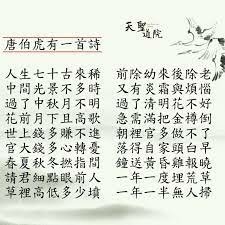 天聖
道院
唐伯虎有一首詩
人生七十古來稀 前除幼來後除老
中間光景不多時 又有炎霜與煩惱
過了中秋月不明 過了清明花不好
花前月下且高歌 急需滿把金樽倒
世上錢多賺不盡 朝裡官多做不了
官大錢多心轉憂 落得自家頭白早
春夏秋冬撚指間 鐘送黃昏雞報曉
請君細點眼前人 一年一度埋荒草
草裡高低多少墳 一年一半無人掃